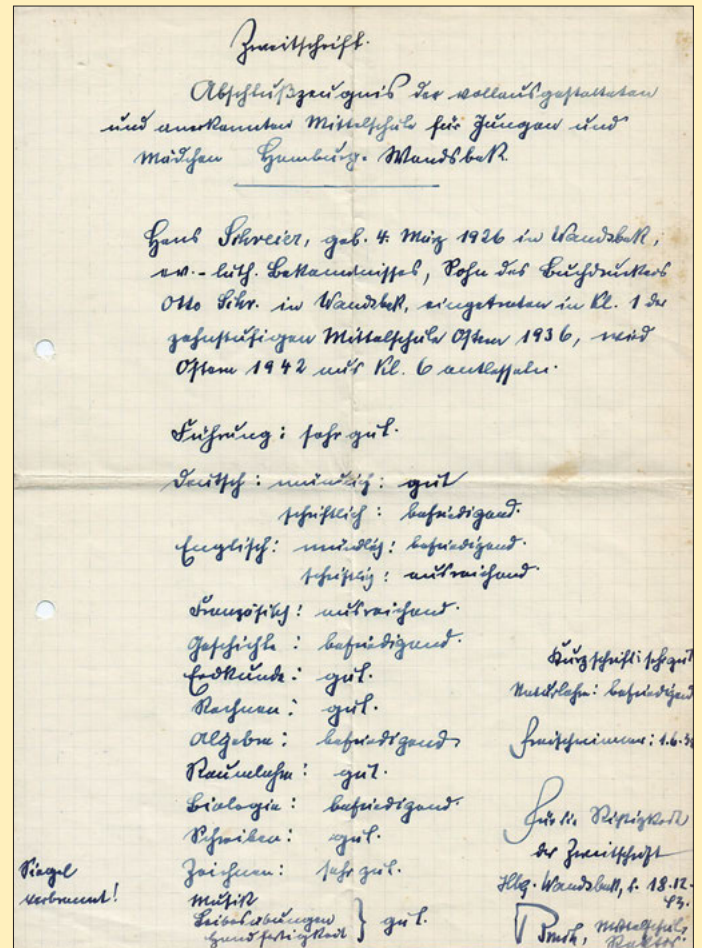 Zweitschrift.
Abschlußzeugnis der vollausgestalteten
und anerkannten Mittelschule für Jungen und
Mädchen Hamburg-Wandsbek.
Hans Schreier, geb. 4. März 1926 in Wandsbek,
ev.-luth. Bekenntnisses, Sohn des Buchdruckers
Otto Schr. in Wandsbek, eingetreten in Kl. 1 der
zehnstufigen Mittelschule Ostern 1936, wird
Ostern 1942 aus Kl. 6 entlassen.
Führung: sehr gut.
Deutsch: mündlich: gut
schriftlich: befriedigend.
Englisch: mündlich: befriedigend.
schriftlich: ausreichend.
Französisch: ausreichend.
Geschichte: befriedigend.
Erdkunde: gut.
Rechnen: gut.
Algebra: befriedigend.
Raumlehre: gut.
Biologie: befriedigend.
Schreiben: gut.
Zeichnen: sehr gut.
Musik
Leibesübungen } gut.
Handfertigkeit
Kurzschrift: sehr gut
Naturlehre: befriedigend
Freischwimmer: 1.6.
Für die Richtigkeit
der Zweitschrift
Hbg.-Wandsbek, d. 18.12.
43.
Mittelschul-
Siegel
verbrannt!